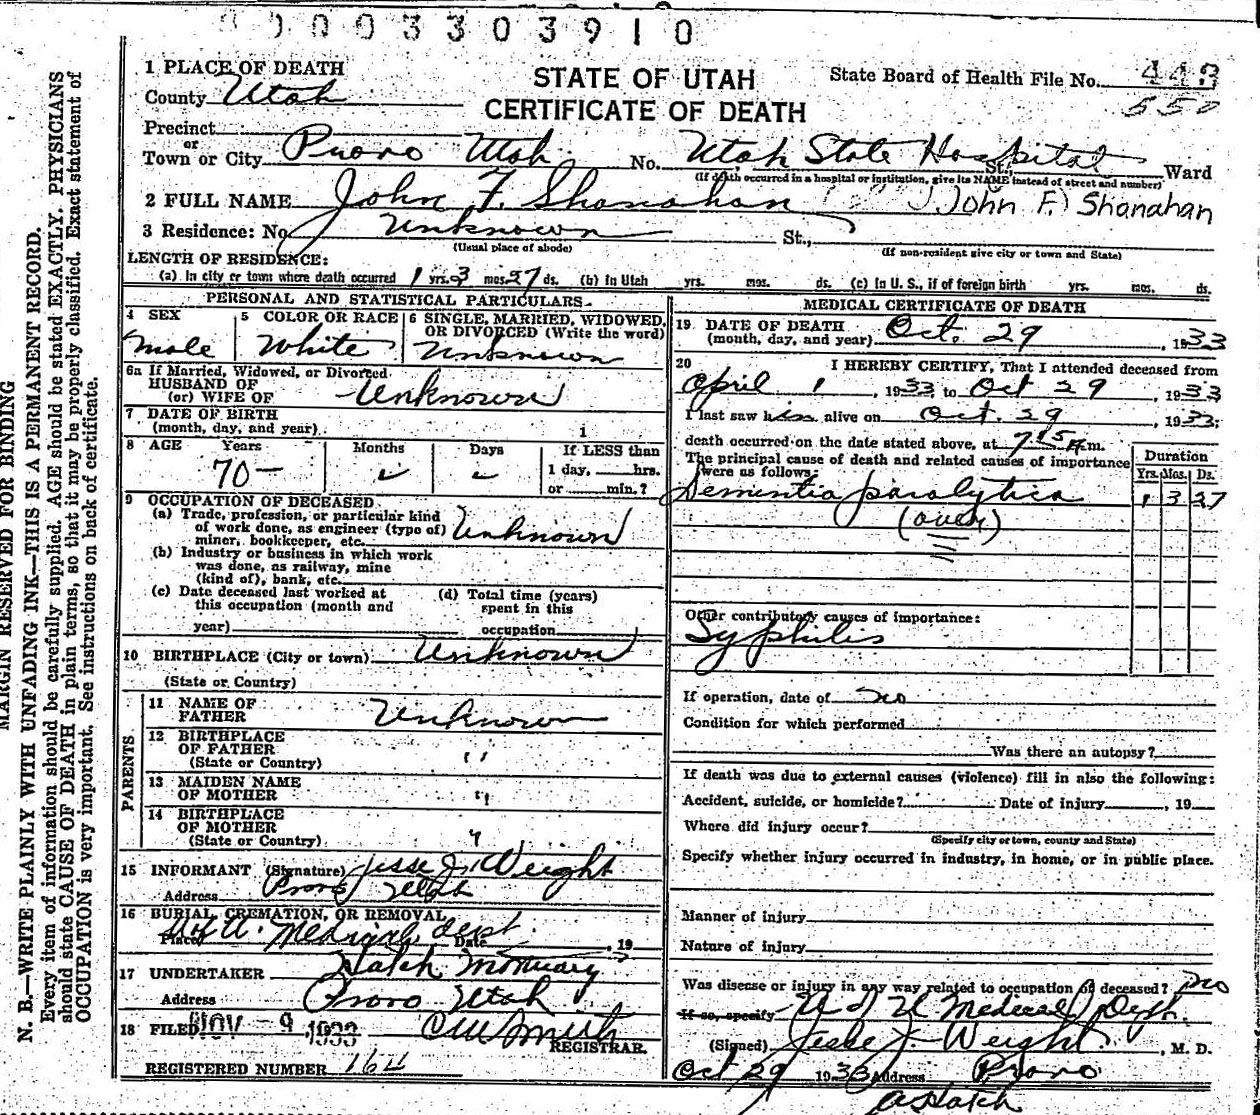 0003303910
1 PLACE OF DEATH
County Utah
STATE OF UTAH
CERTIFICATE OF DEATH
State Board of Health File No. 448
550
Precinct
or
Town or City Provo Utah No. Utah State Hospital St., Ward
(If death occurred in a hospital or institution, give its NAME instead of street and number)
2 FULL NAME John F. Shanahan (John F.) Shanahan
3 Residence: No. Unknown St.,
(Usual place of abode) (If non-resident give city or town and State)
LENGTH OF RESIDENCE:
(a) In city or town where death occurred 1 yrs. 3 mos. 27 ds. (b) In Utah yrs. mos. ds. (c) In U. S., if of foreign birth yrs. mos. ds.
PERSONAL AND STATISTICAL PARTICULARS
4 SEX
male
5 COLOR OR RACE
White
6 SINGLE, MARRIED, WIDOWED,
OR DIVORCED (Write the word)
Unknown
6a If Married, Widowed, or Divorced
HUSBAND OF
(or) WIFE OF Unknown
7 DATE OF BIRTH
(month, day, and year) 1
8 AGE Years Months Days If LESS than
70 - 1 day, hrs.
or min.?
9 OCCUPATION OF DECEASED
(a) Trade, profession, or particular kind
of work done, as engineer (type of)
miner, bookkeeper, etc. Unknown
(b) Industry or business in which work
was done, as railway, mine
(kind of), bank, etc.
(c) Date deceased last worked at
this occupation (month and
year)
(d) Total time (years)
spent in this
occupation
10 BIRTHPLACE (City or town) Unknown
(State or Country)
PARENTS
11 NAME OF
FATHER Unknown
12 BIRTHPLACE
OF FATHER "
(State or Country)
13 MAIDEN NAME
OF MOTHER "
14 BIRTHPLACE
OF MOTHER "
(State or Country)
15 INFORMANT (Signature) Jesse J. Weight
Address Provo Utah
16 BURIAL, CREMATION, OR REMOVAL
Place U of U. Medical Dept. Date , 19
17 UNDERTAKER Hatch Mortuary
Address Provo Utah
18 FILED NOV - 9 1933
REGISTRAR.
REGISTERED NUMBER 164
MEDICAL CERTIFICATE OF DEATH
19 DATE OF DEATH
(month, day, and year) Oct. 29 , 1933
20 I HEREBY CERTIFY, That I attended deceased from
April 1 , 1933 to Oct 29 , 1933
I last saw him alive on Oct. 29 , 1933;
death occurred on the date stated above, at 7 15 A m.
The principal cause of death and related causes of importance
were as follows:
Duration
Yrs. Mos. Ds.
Dementia paralytica 1 3 27
(over)
Other contributory causes of importance:
Syphilis
If operation, date of no
Condition for which performed
Was there an autopsy?
If death was due to external causes (violence) fill in also the following:
Accident, suicide, or homicide? Date of injury , 19
Where did injury occur?
(Specify city or town, county and State)
Specify whether injury occurred in industry, in home, or in public place.
Manner of injury
Nature of injury
Was disease or injury in any way related to occupation of deceased? no
If so, specify U of U Medical Dept.
(Signed) Jesse J. Weight , M. D.
Oct 29 1933 Address Provo
MARGIN RESERVED FOR BINDING
N. B.—WRITE PLAINLY WITH UNFADING INK—THIS IS A PERMANENT RECORD.
Every item of information should be carefully supplied. AGE should be stated EXACTLY. PHYSICIANS
should state CAUSE OF DEATH in plain terms, so that it may be properly classified. Exact statement of
OCCUPATION is very important. See instructions on back of certificate.